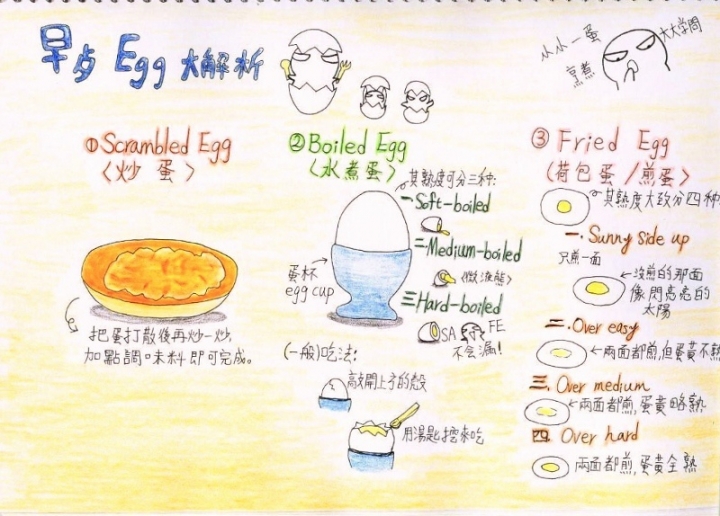 早歺 Egg 大解析
小小一蛋
烹煮
大大學問
①Scrambled Egg
〈炒 蛋〉
把蛋打散後再炒一炒,
加點調味料即可完成。
②Boiled Egg
〈水煮蛋〉
其熟度可分三種:
一.Soft-boiled
二.Medium-boiled
(微液態)
三.Hard-boiled
SAFE
不會漏!
蛋杯
egg cup
(一般)吃法:
敲開上方的殼
用湯匙挖來吃
③ Fried Egg
(荷包蛋/煎蛋〉
其熟度大致分四種
一. Sunny side up
只煎一面
沒煎的那面
像閃亮亮的
太陽
二.Over easy
兩面都煎,但蛋黃不熟
三. Over medium
兩面都煎,蛋黃略熟
四. Over hard
兩面都煎,蛋黃全熟